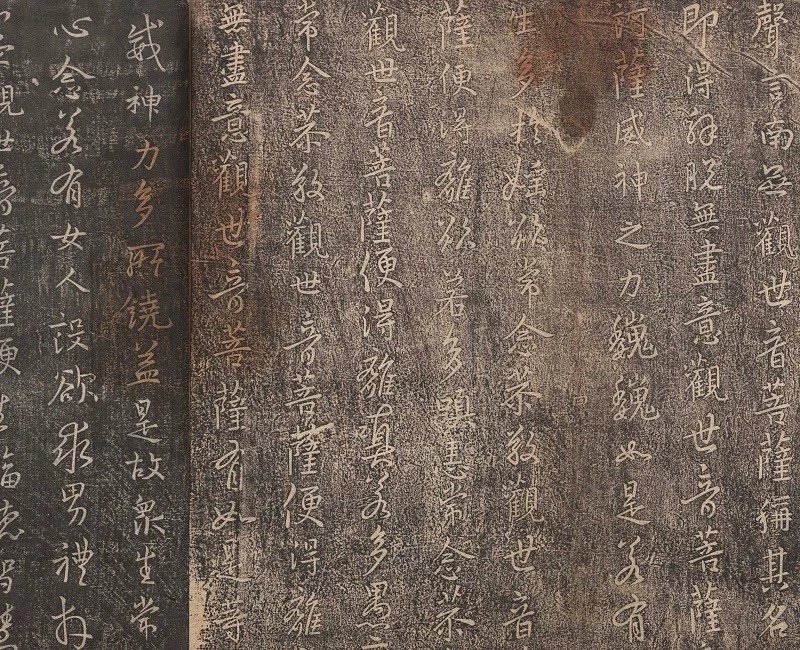 聲言南无觀世音菩薩稱其名
即得解脫無盡意觀世音菩薩
訶薩威神之力巍巍如是若有
生多於婬欲常念恭敬觀世音
薩便得離欲若多瞋恚常念恭
觀世音菩薩便得離瞋若多愚
常念恭敬觀世音菩薩便得離
無盡意觀世音菩薩有如是等
威神力多所饒益是故衆生常
心念若有女人設欲求男禮拜
觀世音菩薩便生福德智慧